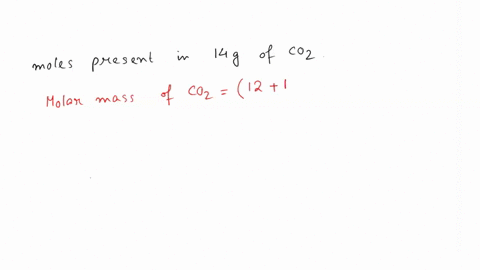 moles present in 14g of CO₂.
Molar mass of CO₂ = (12 + 1